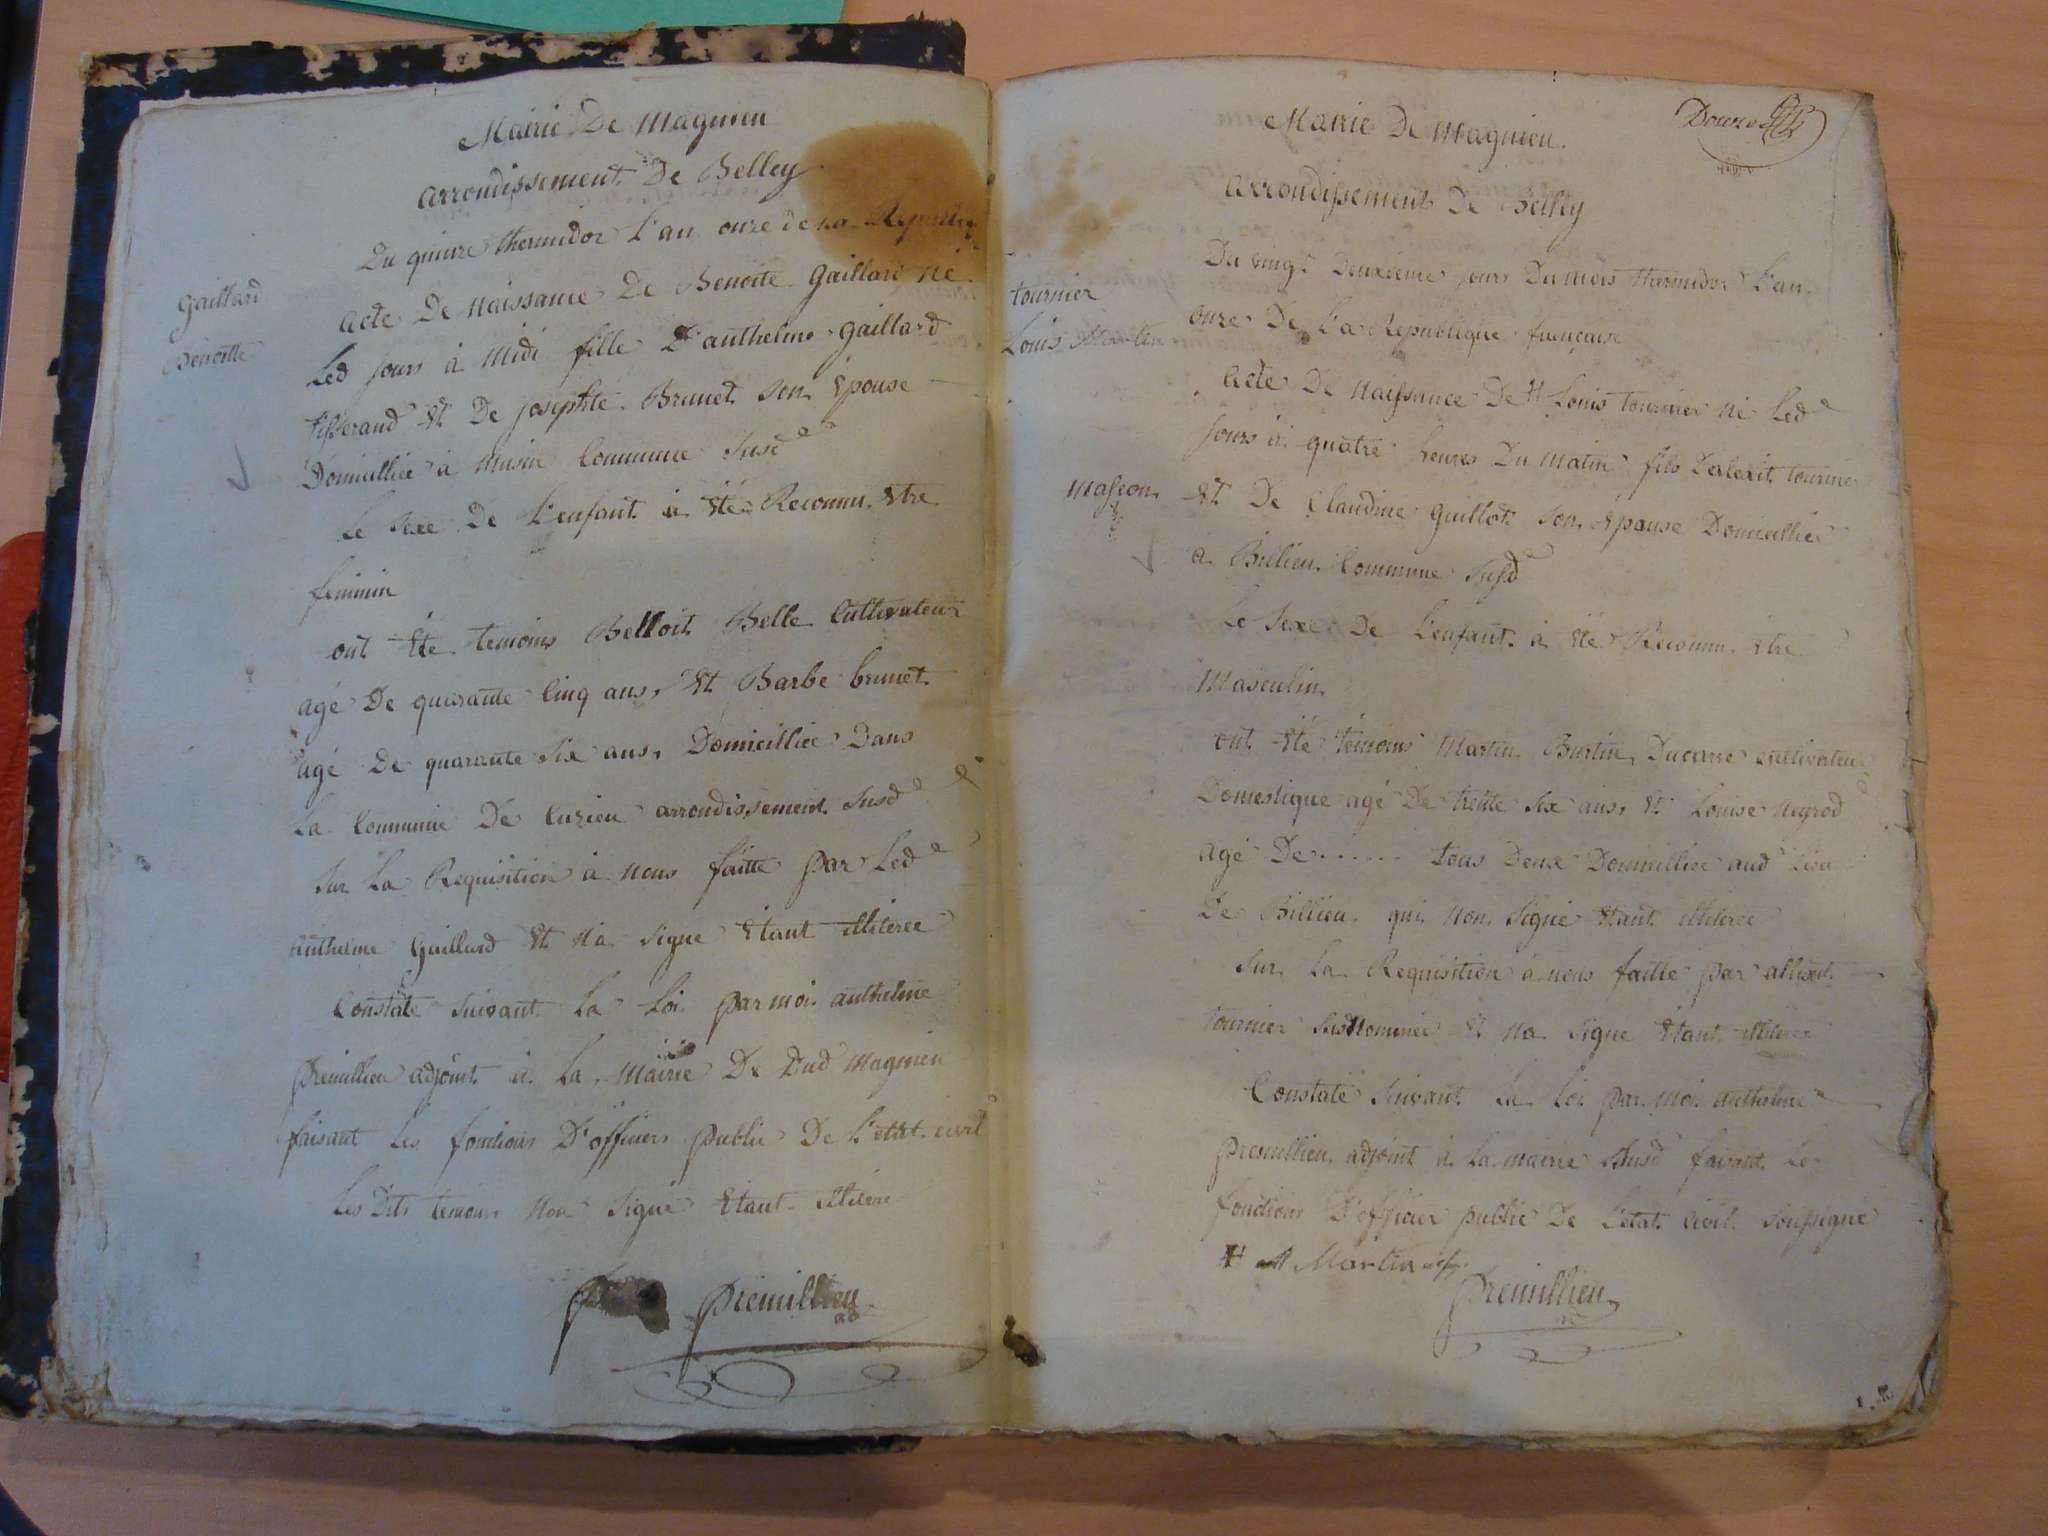 Mairie De Magnieu
arrondissement De Belley
Du quinze thermidor l'an onze de la Republique
Gaillard
Benoitte
acte De Naissance De Benoite Gaillard né
Led jours à midi fille D'anthelme Gaillard
tisserand Et De josephte Brunet son Epouse
Domicilliée à musin Commune susd
Le sexe De L'enfant à Eté Reconnu Etre
feminin
ont Eté temoins Belloit Belle Cultivateur
agé De quarante Cinq ans, Et Barbe brunet
agé De quarante six ans, Domicilliée Dans
La Commune De Cuzieu arrondissement susd
sur La Requisition à nous faitte par Led
anthelme Gaillard Et N'a signe Etant illiteree
Constaté suivant La Loi par moi anthelme
Premillieu adjoint à La Mairie De Dud Magnieu
faisant Les fonctions D'officiers public De L'ettat civil
Les Dits temoins Non signé Etant
Premillieu
ad
Douze
Mairie De Magnieu.
arrondissement De Belley
Du vingt Deuxieme jours Du mois thermidor L'an
onze De L'a Republique française
tournier
Louis Martin
acte De Naissance De # Louis tournier né Led
jours à quatre heures Du matin fils D'alexit tournier
Masson
Et De Claudine Guillot son Epouse Domicilliée
à Billieu Commune susd
Le sexe De L'enfant à Eté Reconnu Etre
Masculin
ont Eté temoins Martin Burtin Ducarre cultivateur
Domestique agé De trente six ans, Et Louise Neyrod
agé De...... tous Deux Domicilliée aud Lieu
De Billieu qui Non signé Etant illiteree
sur La Requisition à nous faitte par
tournier susNommée Et Na signe Etant illiteree
Constaté suivant La Loi par moi anthelme
Premillieu adjoint à La mairie susd faisant Les
fonctions D'officier public De L'etat Civil soussigne
# Martin
Premillieu